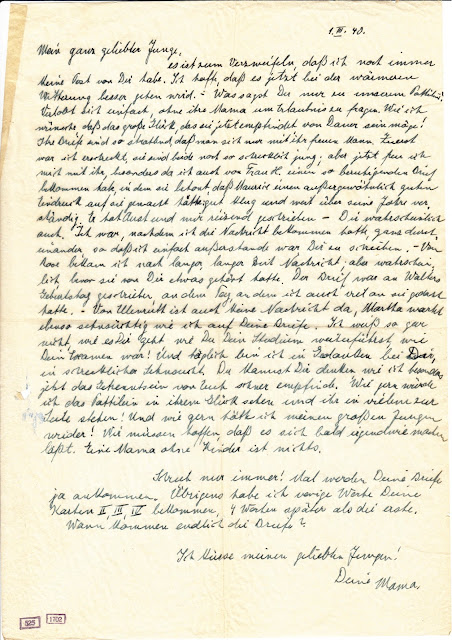 1. III. 40.
Mein ganz geliebter Junge,
es ist zum Verzweifeln, daß ich noch immer
keine Post von Dir habe. Ich hoffe, daß es jetzt bei der wärmeren
Witterung besser gehen wird. - Was sagst Du nur zu unserem Pattilein?
Verlobt sich einfach, ohne ihre Mama um Erlaubnis zu fragen. Wie ich
wünsche, daß das große Glück, das sie jetzt empfindet von Dauer sein möge!
Ihre Briefe sind so strahlend, daß man sich nur mit ihr freuen kann. Zuerst
war ich erschreckt, sie sind beide noch so schrecklich jung, aber jetzt freu ich
mich mit ihr, besonders da ich auch von Frau H. einen so beruhigenden Brief
bekommen habe, in dem sie betont, daß Maurice einen außergewöhnlich guten
Eindruck auf sie gemacht hätte, gut klug und weit über seine Jahre ver-
ständig. Er hat Aust und mir reizend geschrieben - Dir wahrscheinlich
auch. Ich war, nachdem ich die Nachricht bekommen hatte, ganz durch-
einander so daß ich einfach außerstande war Dir zu schreiben. - Von
Rose bekam ich nach langer, langer Zeit Nachricht, aber wahrschein-
lich, bevor sie von Dir etwas gehört hatte. Der Brief war an Walters
Geburtstag geschrieben, an dem Tag, an dem ich auch viel an sie gedacht
hatte. - Von Ulle ist auch keine Nachricht da, Martha wartet
ebenso sehnsüchtig wie ich auf Deine Briefe. Ich weiß so gar
nicht, wie es Dir geht wie Du Dein Studium weiterführst, wie
Dein Examen war! Und täglich bin ich in Gedanken bei Dir,
in schrecklicher Sehnsucht. Du kannst Dir denken wie ich besonders
jetzt das Getrenntsein von Euch schwer empfinde. Wie gern würde
ich das Pattilein in ihrem Glück sehen und ihr in vielem zur
Seite stehen! Und wie gern hätte ich meinen großen Jungen
wieder! Wir müssen hoffen, daß es sich bald irgendwie machen
läßt. Eine Mama ohne Kinder ist nichts.
Schreib nur immer! Mal werden Deine Briefe
ja ankommen. Übrigens habe ich vorige Woche Deine
Karten II, III, IV bekommen, 4 Wochen später als die erste.
Wann kommen endlich die Briefe?
Ich küsse meinen geliebten Jungen!
Deine Mama.
525 1702